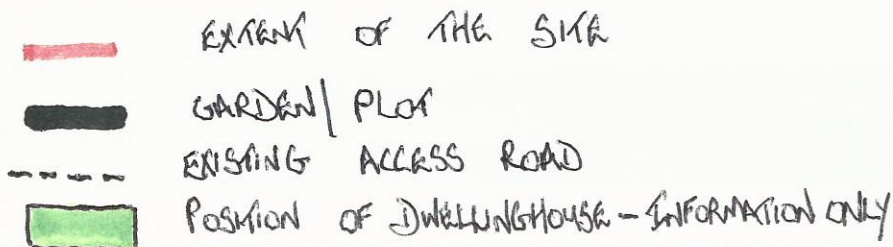 EXTENT OF THE SITE
GARDEN/ PLOT
EXISTING ACCESS ROAD
POSITION OF DWELLINGHOUSE - INFORMATION ONLY